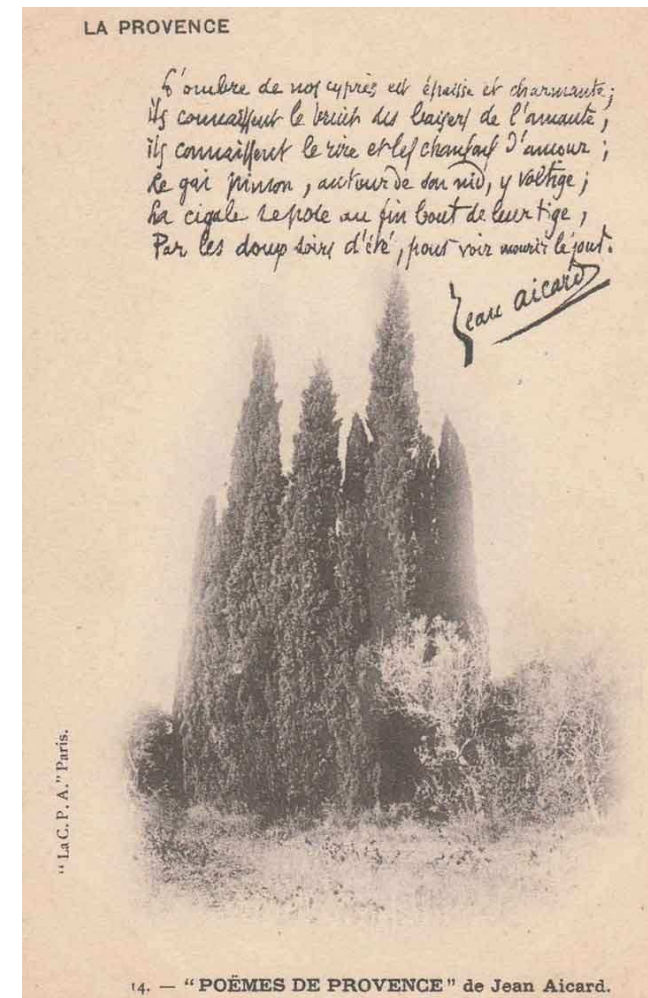 LA PROVENCE
L'ombre de nos cyprès est épaisse et charmante ;
ils connaissent le bruit des baisers de l'amante ,
ils connaissent le rire et les chansons d'amour ;
Le gai pinson , autour de son nid, y voltige ;
La cigale se pose au fin bout de leur tige ,
Par les doux soirs d'été , pour voir mourir le jour.
Jean Aicard
"La C. P. A." Paris.
14. — "POËMES DE PROVENCE" de Jean Aicard.